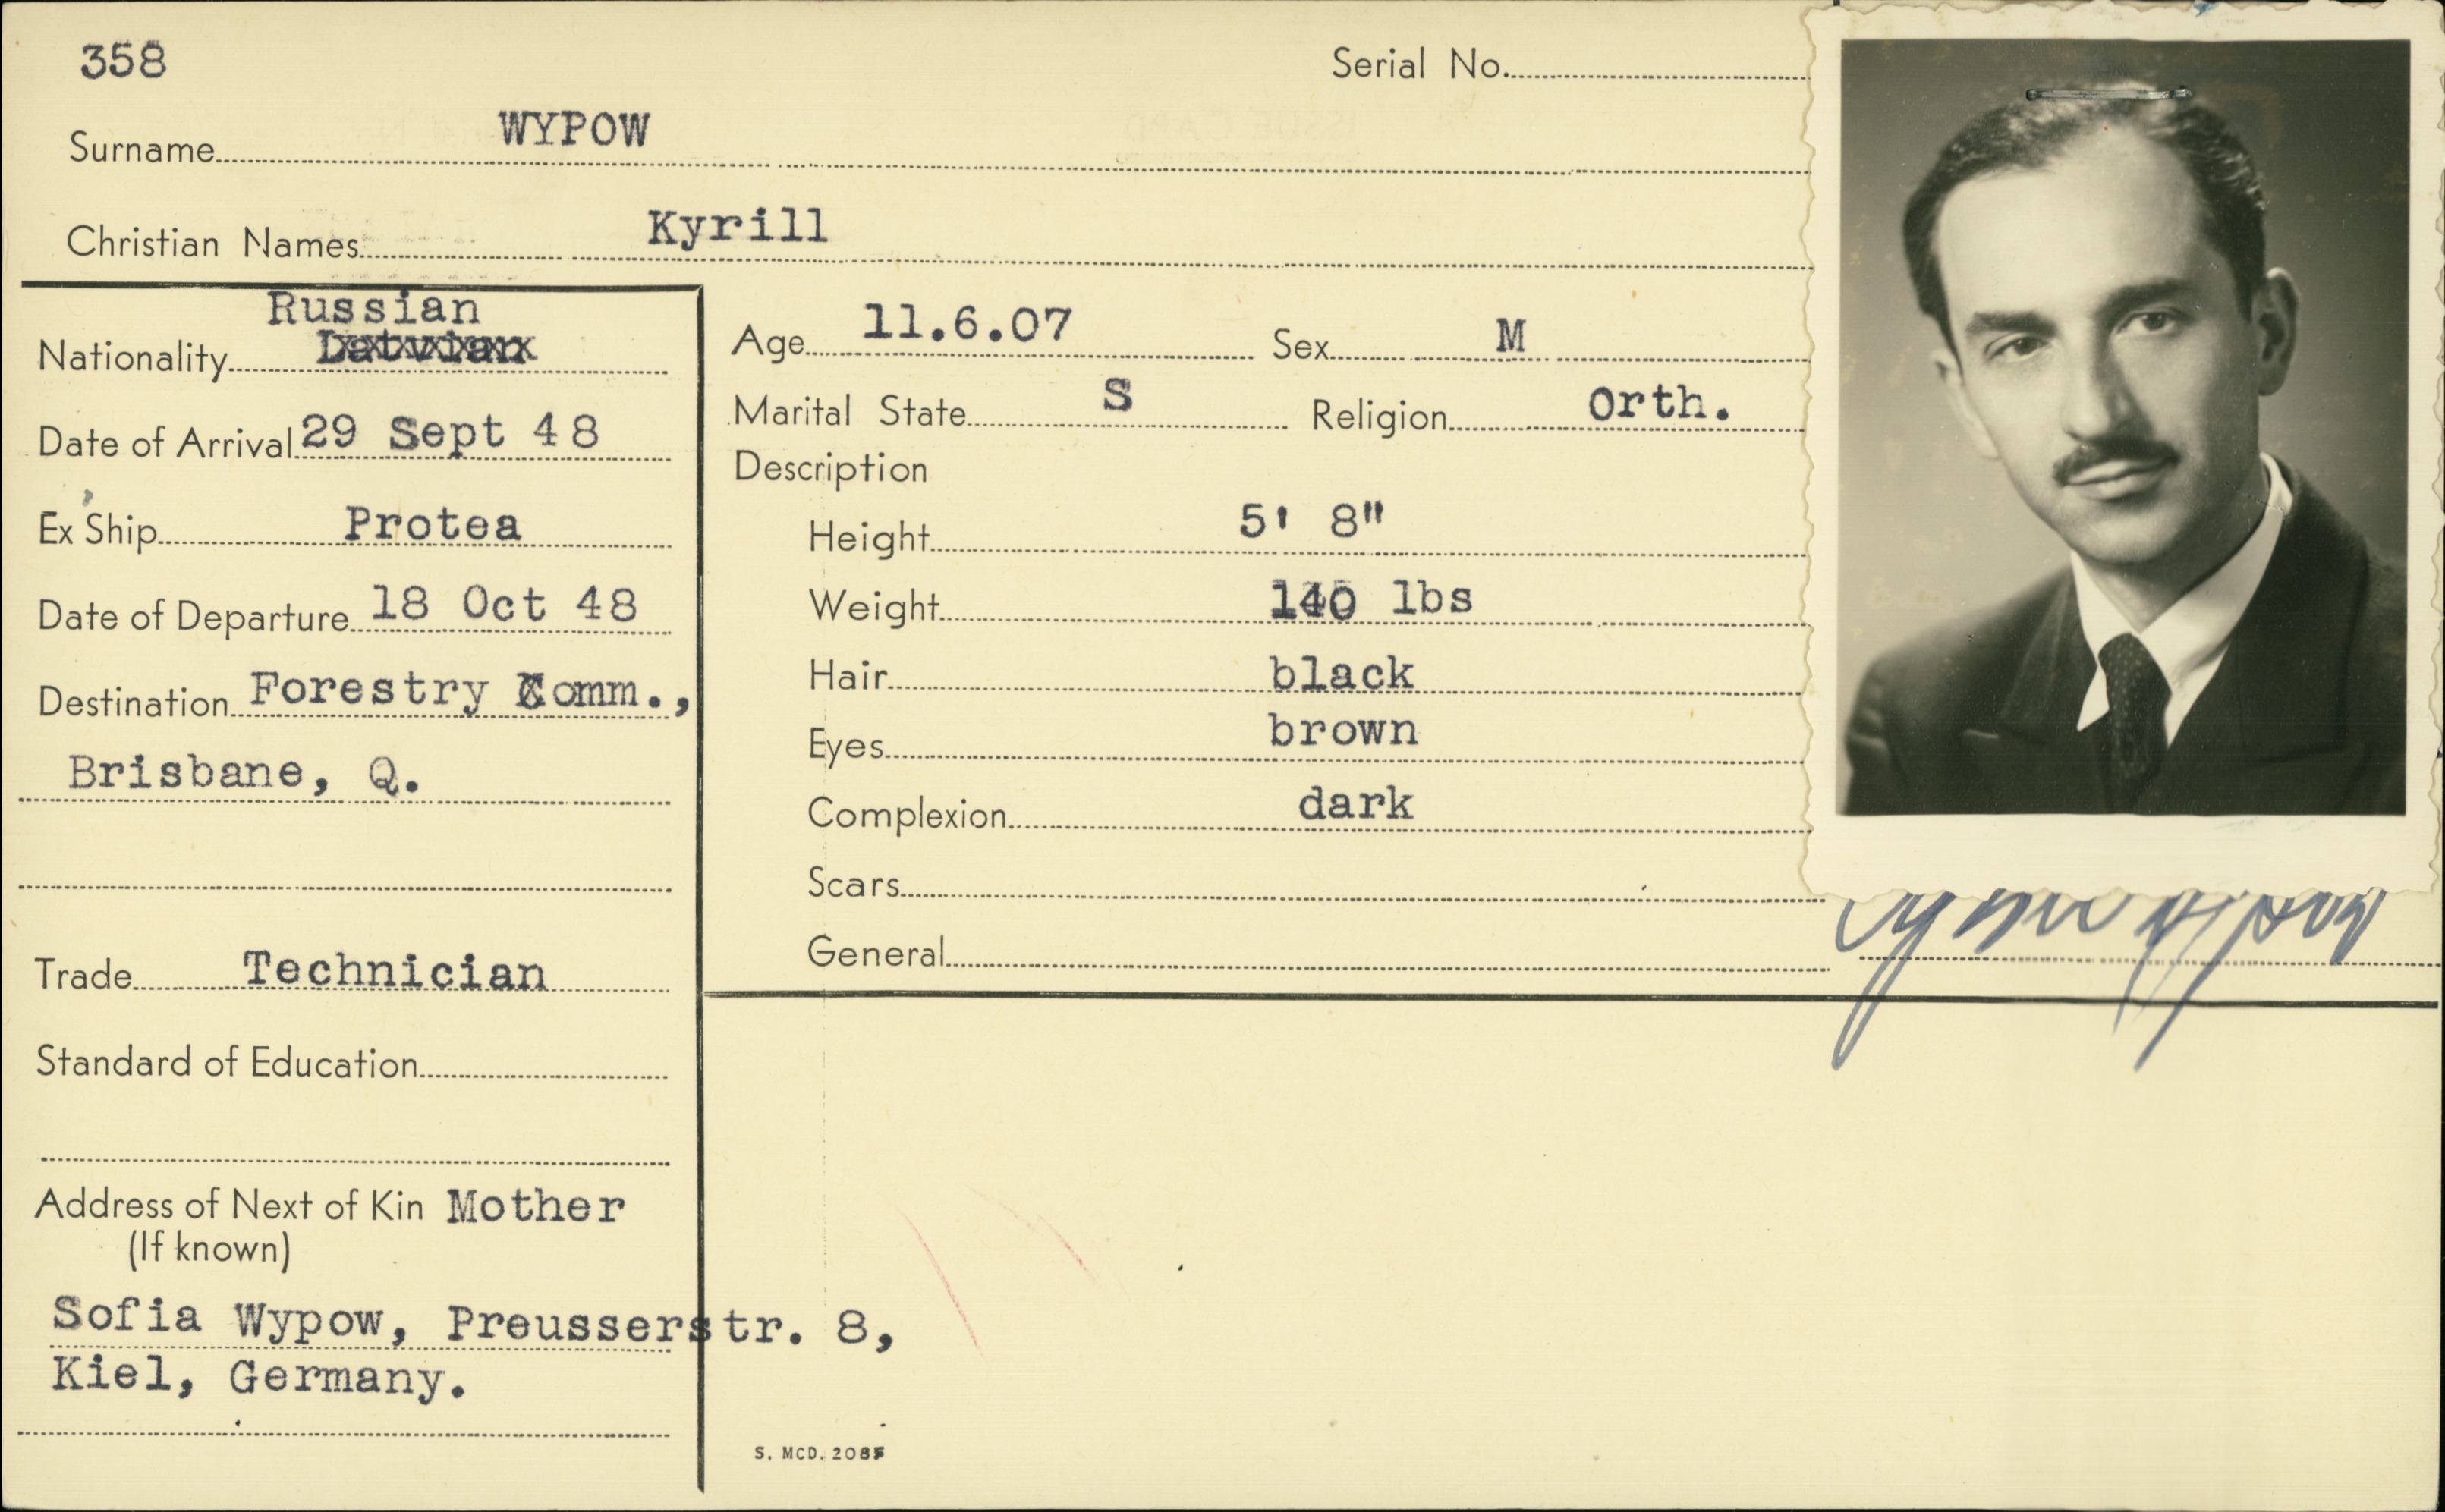 358
Serial No.
Surname WYPOW
Christian Names Kyrill
Russian
Nationality Latvian
Date of Arrival 29 Sept 48
Ex Ship Protea
Date of Departure 18 Oct 48
Destination Forestry Comm.,
Brisbane, Q.
Trade Technician
Standard of Education
Address of Next of Kin Mother
(If known)
Sofia Wypow, Preusserstr. 8,
Kiel, Germany.
Age 11.6.07 Sex M
Marital State S Religion Orth.
Description
Height 5' 8"
Weight 140 lbs
Hair black
Eyes brown
Complexion dark
Scars
General
S. MCD. 208